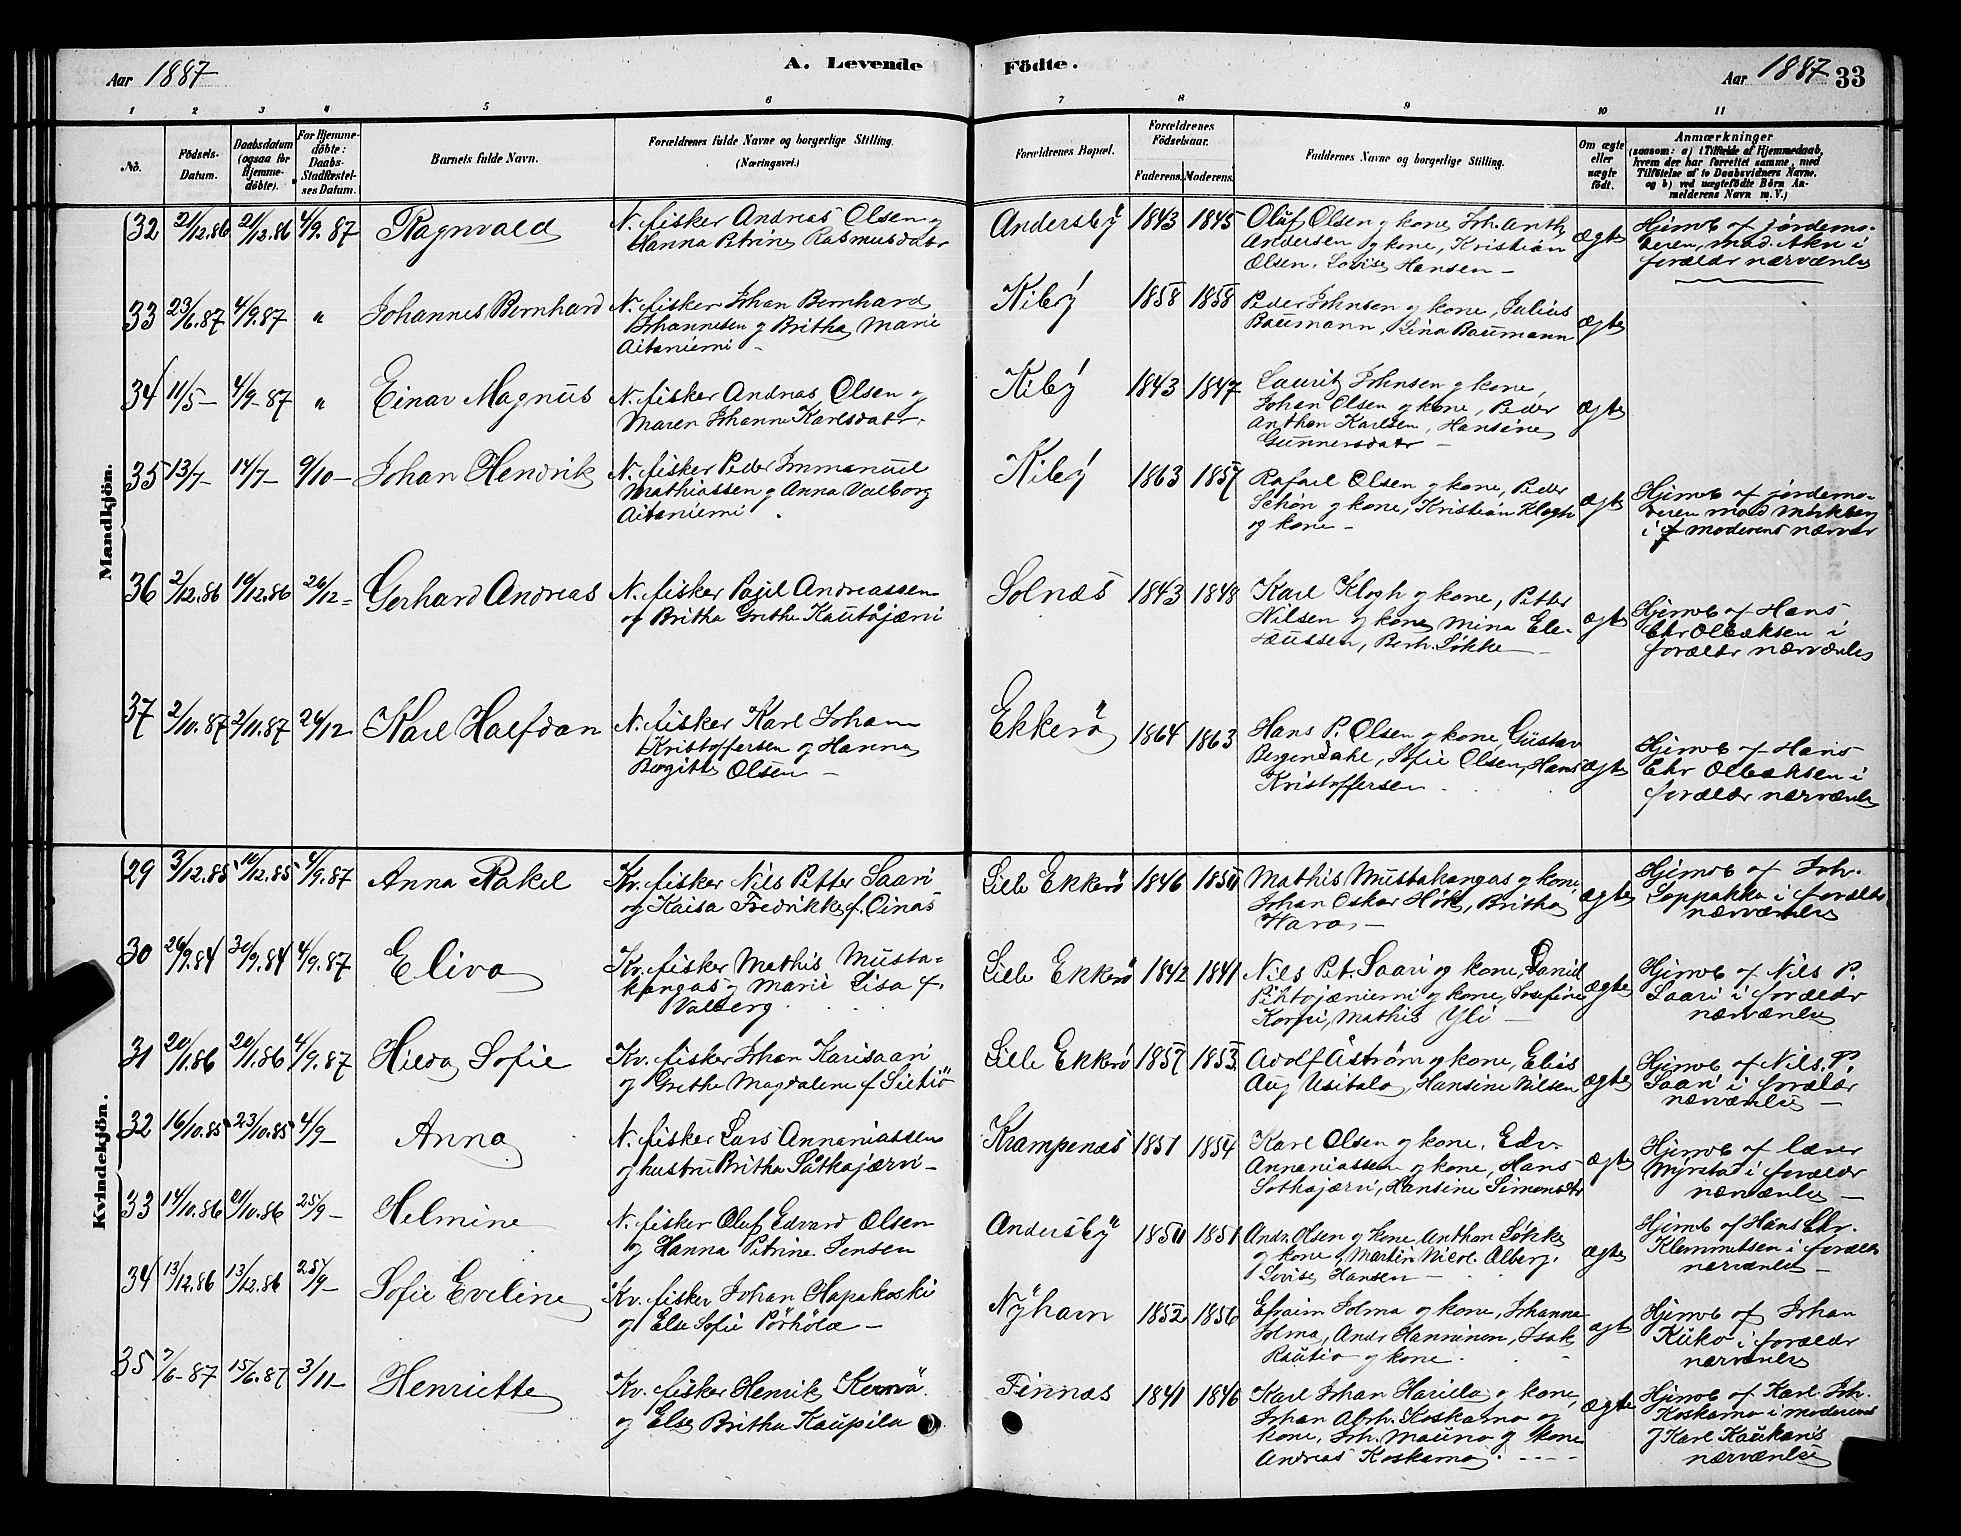 Aar 1887
A. Levende Födte.
Aar 1887 33
1 2 3 4 5 6 7 8 9 10 11
No.
Födsels-Datum.
Daabsdatum (ogsaa for Hjemme-döbte).
For Hjemme-döbte: Daabs-Stadfæstel-ses Datum.
Barnets fulde Navn.
Forældrenes fulde Navne og borgerlige Stilling.
(Næringsvei.)
Forældrenes Bopæl.
Forældrenes Födselsaar.
Faderens. Moderens.
Faddernes Navne og borgerlige Stilling.
Om ægte eller uægte födt.
Anmærkninger
(saasom: a) i Tilfælde af Hjemmedaab,
hvem der har forrettet samme, med
Tilföielse af to Daabsvidners Navne.
og b) ved uægtefödte Börn An-
melderens Navn m. V.)
Mandkjön.
32 2/12.86 21/12.86 4/9.87 Ragnvald
N. fisker Andreas Olsen og
Hanna Petrine Rasmusdatr
Andersby 1843 1845
Oluf Olsen og kone, Joh. Anth.
Andersen og kone, Kristian
Olsen. Lovise Hansen –
ægte
Hjemb af jordemo-
deren, mad. Akre i
forældr nærværelse
33 23/6.87 4/9.87 " Johannes Bernhard
N. fisker Johan Bernhard
Johannesen og Britha Marie
Aitaniemi –
Kiby 1858 1858
Peder Johnsen og kone, Julius
Baumann, Lina Baumann
ægte
34 11/5– 4/9–87 " Einar Magnus
N. fisker Andreas Olsen og
Maren Johanne Karlsdatr.
Kiby 1843 1847
Lauritz Johnsen og kone,
Johan Olsen og kone, Peder
Anthon Karlsen, Hansine
Gunnersdatr –
ægte
35 13/7– 14/7– 9/10– Johan Hendrik
N. fisker Peder Immanuel
Mathiassen og Anna Valborg
Aitaniemi
Kiby 1863 1857
Rafael Olsen og kone, Peder
Schøn og kone, Kristian Klogh
og kone –
ægte
Hjemb af jordemo-
deren mad
i moderens nærvær
36 2/12.86 10/12.86 26/12– Gerhard Andreas
N. fisker Paul Andreassen
og Britha Grethe Kautojæri
Solnæs 1843 1848
Karl Klogh og kone, Petter
Nilsen og kone, Mina Ele-
æussen, Berh. Søkke
ægte
Hjemb af Hans
Chr Olbæksen i
forældr nærværelse
37 2/10.87 2/11.87 26/12 Karl Halfdan
N. fisker Karl Johan
Kristoffersen og Hanna
Bergitte Olsen –
Ekkerö 1864 1863
Hans P. Olsen og kone, Gustav
Bergendahl, Sofie Olsen, Hans
Kristoffersen
ægte
Hjemb af Hans
Chr Olbæksen i
forældr nærværelse
Kvindekjön.
29 3/12.85 10/12.85 4/9.87 Anna Rakel
Kv. fisker Nils Petter Saari
og Kaisa Fredrikke f. Oinas
Lille Ekkerö 1846 1850
Mathis Mustakangas og kone
Johan Oskar Høk, Britha
Hara –
ægte
Hjemb af Joh.
Loppakka i forældr
nærværelse
30 29/9.84 30/9.84 4/9.87 Eliva
Kv. fisker Mathis Musta-
kangas og Marie Lisa f.
Valberg
Lille Ekkerö 1842 1841
Nils Pet. Saari og kone, Daniel
Pihtajæniemi og kone, Josefine
Korpi, Mathis Yli –
ægte
Hjemb af Nils P.
Saari i forældr
nærværelse
31 20/1.86 20/1.86 4/9.87 Hilda Sofie
Kv. fisker Johan Karisaari
og Grethe Magdalene f. Sietiö
Lille Ekkerö 1857 1853
Adolf Åström og kone, Elias
Aug Usitalo, Hansine Nilsen
ægte
Hjemb af Nils. P.
Saari i forældr
nærværelse –
32 16/10.85 23/10.85 4/9– Anna
N. fisker Lars Annaniassen
og hustru Britha Såtkajærvi –
Krampenæs 1851 1854
Karl Olsen og kone, Edv.
Annaniassen og kone, Hans
Sotkajærvi, Hansine Simonsdtr
ægte
Hjemb af lærer
Myrstad i forældr
nærværelse –
33 14/10.86 21/10.86 25/9– Helmine
N. fisker Oluf Edvard Olsen
og Hanna Petrine Jensen
Andersby 1850 1851
Andr. Olsen og kone, Anthon Søkke
og kone, Martin Nicol. Alberg,
Lovise Hansen –
ægte
Hjemb af Hans Chr.
Klemmetsen i forældr
nærværelse –
34 13/12.86 13/12.86 25/9– Sofie Eveline
Kv. fisker Johan Hapakoski
og Else Sofie Pörhölæ –
Nyhavn 1852 1856
Efraim Jolma og kone, Johanna
Jolma, Andr Hanninen, Isak
Rautio og kone.
ægt
Hjemb af Johan
Kuko i forældr
nærværelse
35 7/6–87 15/6.87 3/11– Henriette
Kv. fisker Henrik
og Else Britha Kaupila
Finnæs 1841 1846
Karl Johan Harila og kone,
Johan Abrh. Koskamo og
kone, Joh. Mauno og kone
Andreas Koskamo.
ægte
Hjemb af Karl Joh.
Koskamo i moderens
Karl Kaukanis
nærværelse